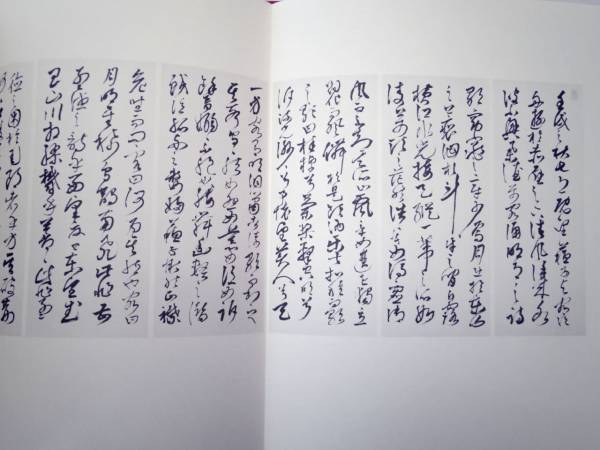 壬戌之秋七月既望蘇子與客泛
舟遊於赤壁之下清風徐來水
波不興舉酒屬客誦明月之詩
歌窈窕之章少焉月出於東山
之上徘徊於斗牛之間白露
橫江水光接天縱一葦之所如
凌萬頃之茫然浩浩乎如馮虛御
風而不知其所止飄飄乎如遺世獨立
羽化而登仙於是飲酒樂甚扣舷而歌
之歌曰桂棹兮蘭槳擊空明兮
泝流光渺渺兮予懷望美人兮天
一方客有吹洞簫者倚歌而和之
其聲嗚嗚然如怨如慕如泣如訴
餘音嫋嫋不絕如縷舞幽壑之潛
蛟泣孤舟之嫠婦蘇子愀然正襟
危坐而問客曰何為其然也客曰
月明星稀烏鵲南飛此非曹
孟德之詩乎西望夏口東望武
昌山川相繆鬱乎蒼蒼此非孟
德之困於周郎者乎方其破荊